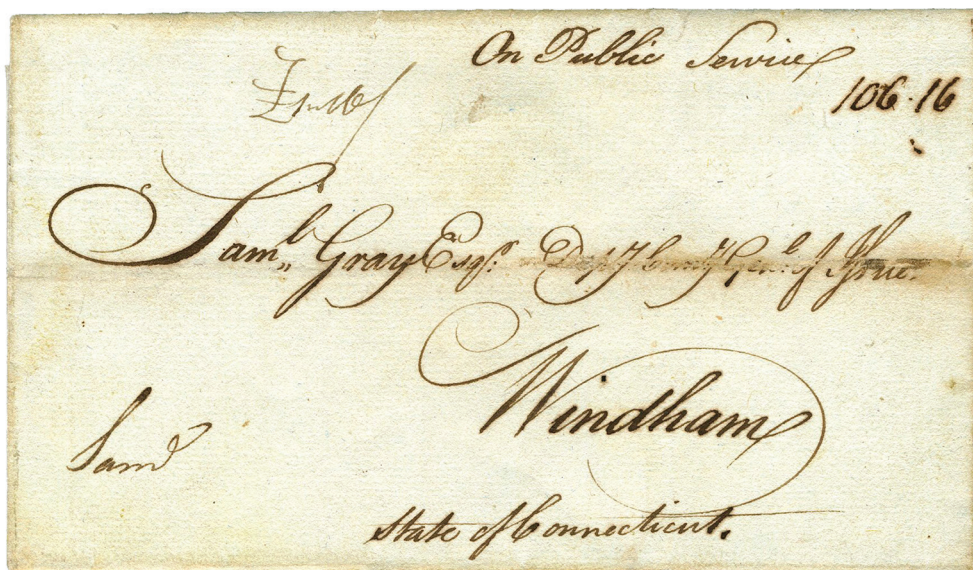 On Public Service
106.16
Saml Gray Esqr. Depy Comy Genl of Issues
Windham
Sam
State of Connecticut.